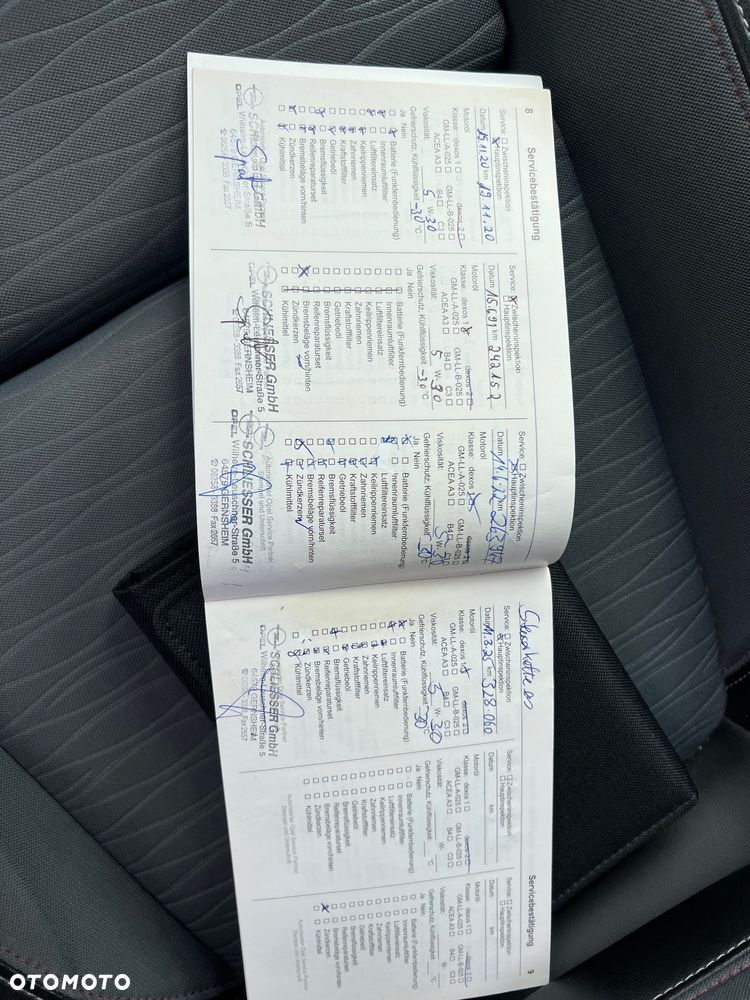 8 Servicebestätigung
Service: □ Zwischeninspektion
□ Hauptinspektion
Datum km 19.11.20
Motoröl
Klasse: dexos 1 □ dexos 2 □
GM-LL-A-025 □ GM-LL-B-025 □
ACEA A3 □ B4 □ C3 □
Viskosität: 5 W- 30
Gefrierschutz, Kühlflüssigkeit -30 °C
Ja Nein
□ □ Batterie (Funkfernbedienung)
□ □ Innenraumluftfilter
□ □ Luftfiltereinsatz
□ □ Keilrippenriemen
□ □ Zahnriemen
□ □ Kraftstofffilter
□ □ Getriebeöl
□ □ Bremsflüssigkeit
□ □ Reifenreparaturset
□ □ Bremsbeläge vorn/hinten
□ □ Zündkerzen
□ □ Kühlmittel
OPEL
Service: □ Zwischeninspektion
□ Hauptinspektion
Datum km
Motoröl
Klasse: dexos 1 □ dexos 2 □
GM-LL-A-025 □ GM-LL-B-025 □
ACEA A3 □ B4 □ C3 □
Viskosität: 5 W- 30
Gefrierschutz, Kühlflüssigkeit -30 °C
Ja Nein
□ □ Batterie (Funkfernbedienung)
□ □ Innenraumluftfilter
□ □ Luftfiltereinsatz
□ □ Keilrippenriemen
□ □ Zahnriemen
□ □ Kraftstofffilter
□ □ Getriebeöl
□ □ Bremsflüssigkeit
□ □ Reifenreparaturset
□ □ Bremsbeläge vorn/hinten
□ □ Zündkerzen
□ □ Kühlmittel
SCHLIESSER GmbH
Service: □ Zwischeninspektion
□ Hauptinspektion
Datum km
Motoröl
Klasse: dexos 1 □ dexos 2 □
GM-LL-A-025 □ GM-LL-B-025 □
ACEA A3 □ B4 □ C3 □
Viskosität: 5 W- 30
Gefrierschutz, Kühlflüssigkeit -30 °C
Ja Nein
□ □ Batterie (Funkfernbedienung)
□ □ Innenraumluftfilter
□ □ Luftfiltereinsatz
□ □ Keilrippenriemen
□ □ Zahnriemen
□ □ Kraftstofffilter
□ □ Getriebeöl
□ □ Bremsflüssigkeit
□ □ Reifenreparaturset
□ □ Bremsbeläge vorn/hinten
□ □ Zündkerzen
□ □ Kühlmittel
SCHLIESSER GmbH
OPEL
64579 GERNSHEIM
Servicebestätigung 9
Service: □ Zwischeninspektion
□ Hauptinspektion
Datum 11.3.25 km 328.060
Motoröl
Klasse: dexos 1 □ dexos 2 □
GM-LL-A-025 □ GM-LL-B-025 □
ACEA A3 □ B4 □ C3 □
Viskosität: 5 W- 30
Gefrierschutz, Kühlflüssigkeit -30 °C
Ja Nein
□ □ Batterie (Funkfernbedienung)
□ □ Innenraumluftfilter
□ □ Luftfiltereinsatz
□ □ Keilrippenriemen
□ □ Zahnriemen
□ □ Kraftstofffilter
□ □ Getriebeöl
□ □ Bremsflüssigkeit
□ □ Reifenreparaturset
□ □ Bremsbeläge vorn/hinten
□ □ Zündkerzen
□ □ Kühlmittel
SCHLIESSER GmbH
OPEL
64579 GERNSHEIM
Service: □ Zwischeninspektion
□ Hauptinspektion
Datum km
Motoröl
Klasse: dexos 1 □ dexos 2 □
GM-LL-A-025 □ GM-LL-B-025 □
ACEA A3 □ B4 □ C3 □
Viskosität: W-
Gefrierschutz, Kühlflüssigkeit °C
Ja Nein
□ □ Batterie (Funkfernbedienung)
□ □ Innenraumluftfilter
□ □ Luftfiltereinsatz
□ □ Keilrippenriemen
□ □ Zahnriemen
□ □ Kraftstofffilter
□ □ Getriebeöl
□ □ Bremsflüssigkeit
□ □ Reifenreparaturset
□ □ Bremsbeläge vorn/hinten
□ □ Zündkerzen
□ □ Kühlmittel
Autorisierter Opel Service Partner
Stempel und Unterschrift
Service: □ Zwischeninspektion
□ Hauptinspektion
Datum km
Motoröl
Klasse: dexos 1 □ dexos 2 □
GM-LL-A-025 □ GM-LL-B-025 □
ACEA A3 □ B4 □ C3 □
Viskosität: W-
Gefrierschutz, Kühlflüssigkeit °C
Ja Nein
□ □ Batterie (Funkfernbedienung)
□ □ Innenraumluftfilter
□ □ Luftfiltereinsatz
□ □ Keilrippenriemen
□ □ Zahnriemen
□ □ Kraftstofffilter
□ □ Getriebeöl
□ □ Bremsflüssigkeit
□ □ Reifenreparaturset
□ □ Bremsbeläge vorn/hinten
□ □ Zündkerzen
□ □ Kühlmittel
Autorisierter Opel Service Partner
Stempel und Unterschrift
OTOMOTO